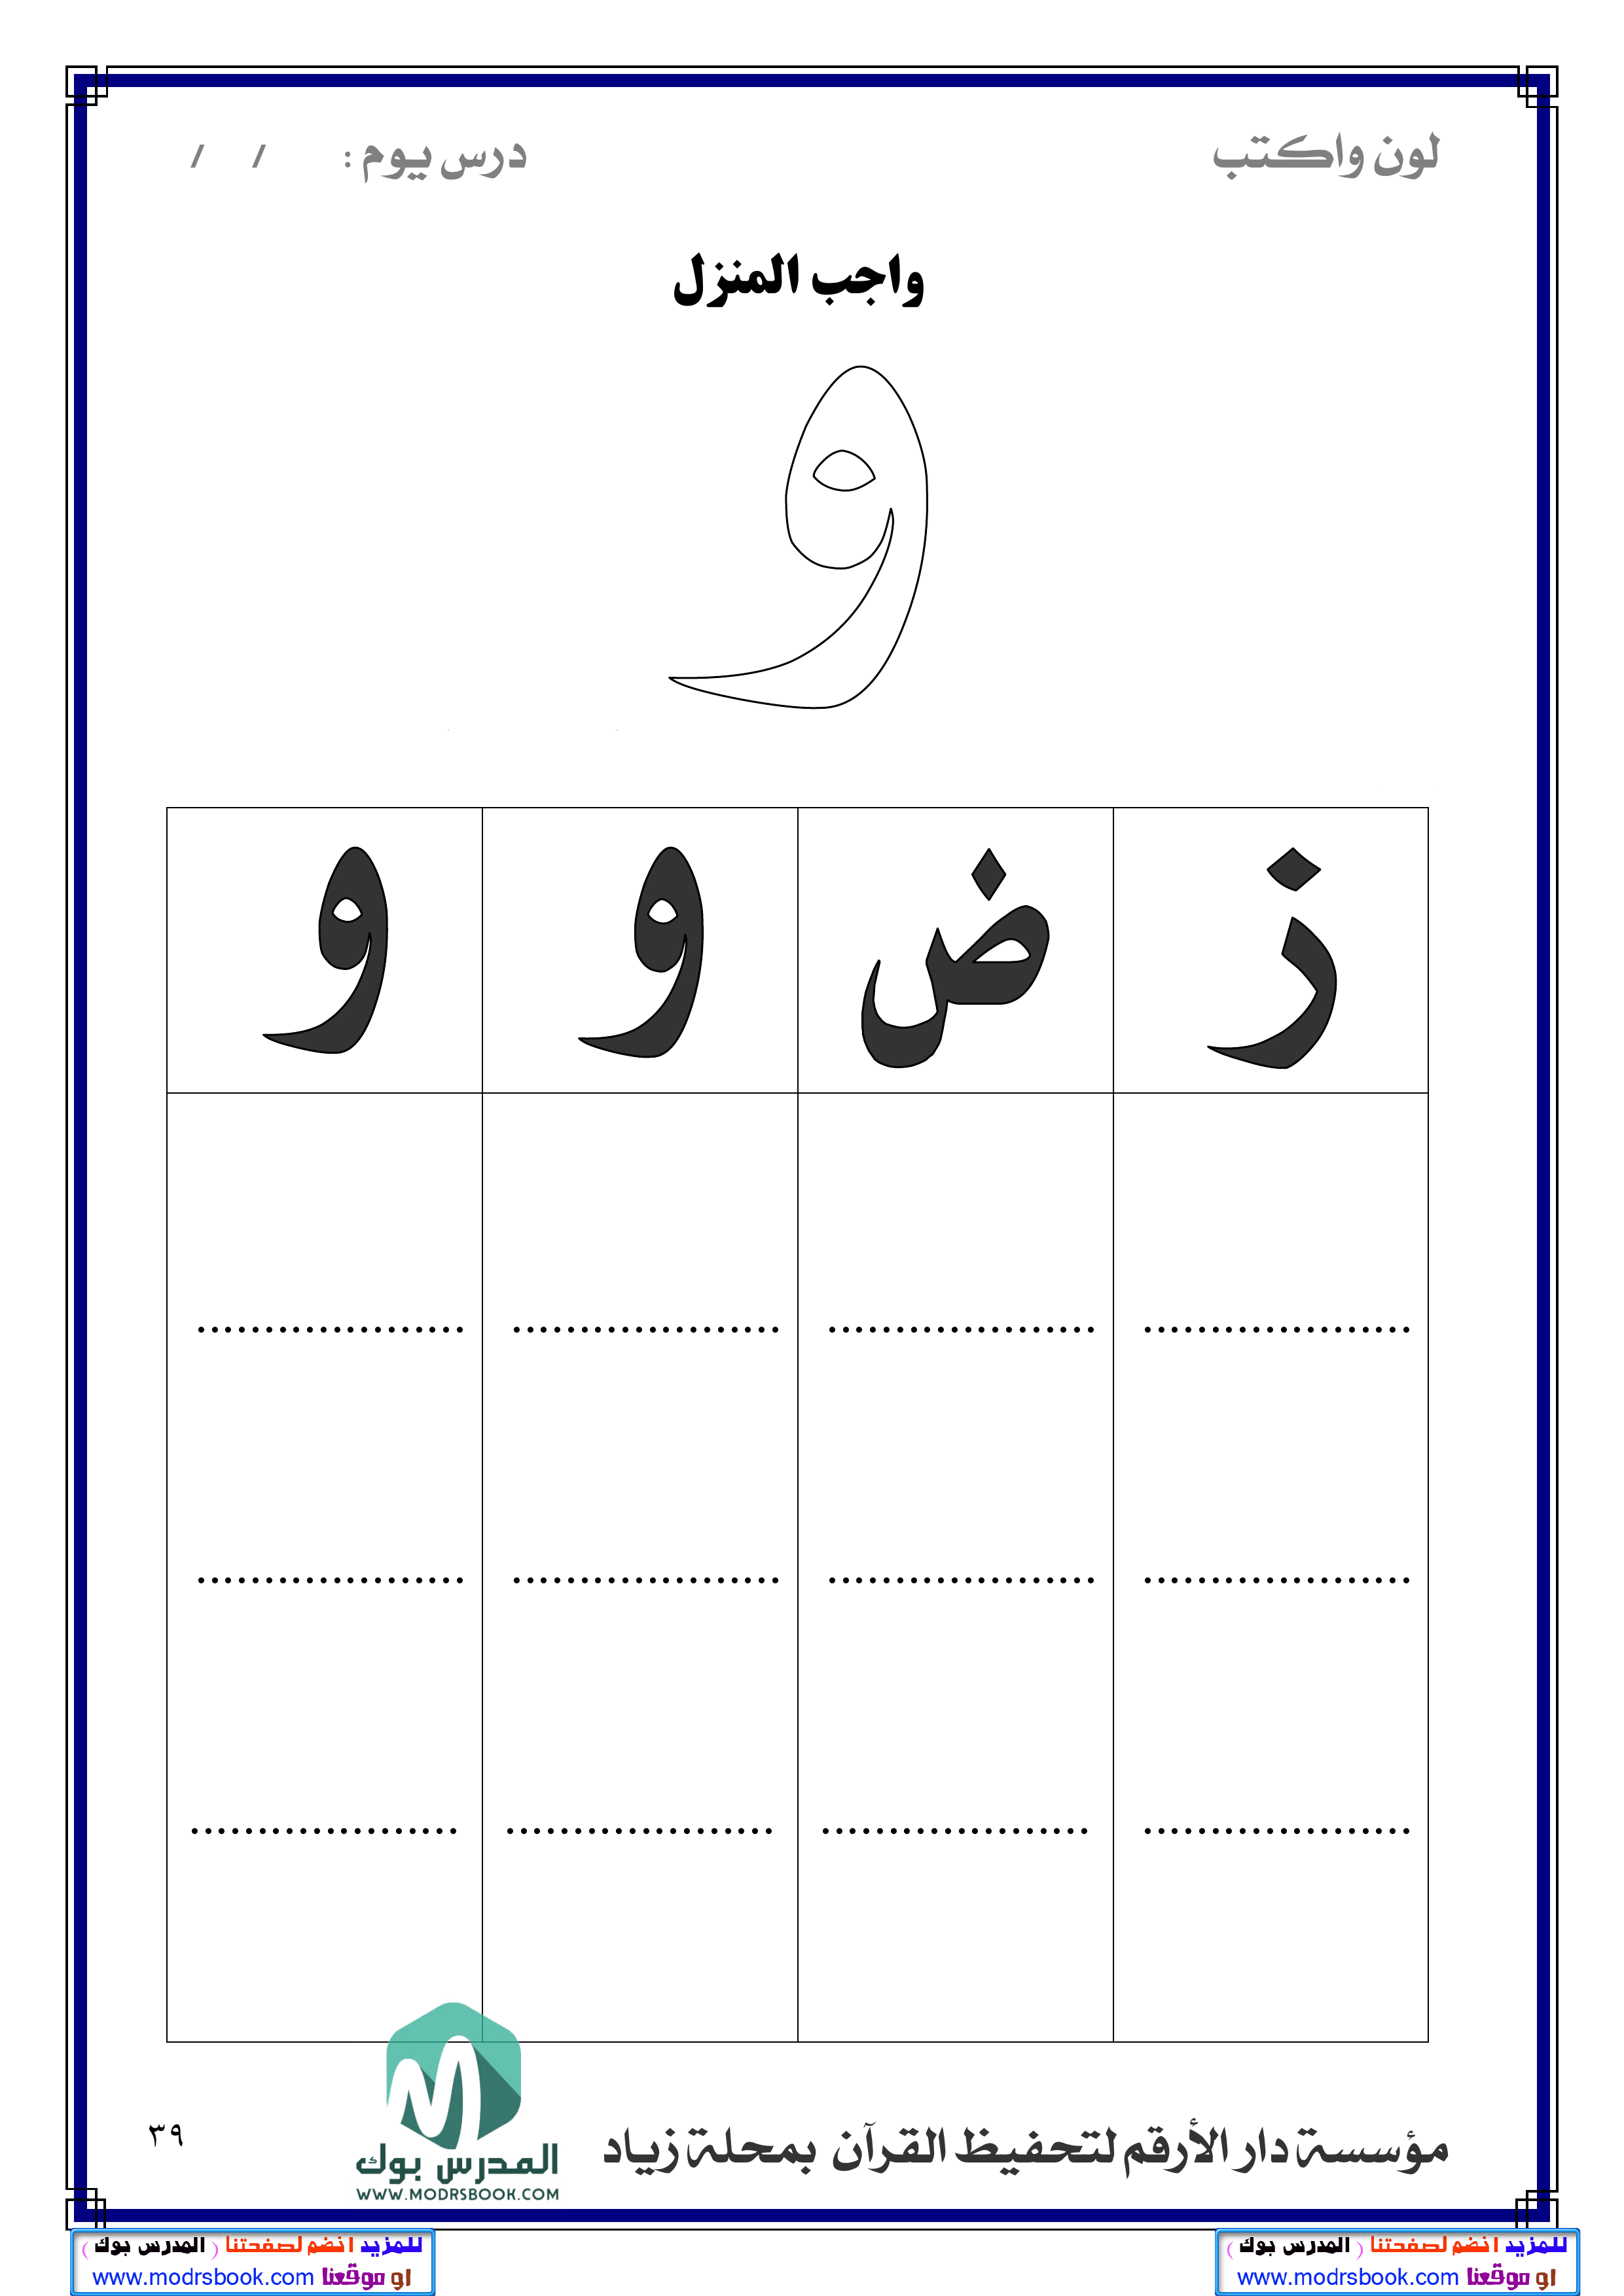 لون واكتب
درس يوم : / /
واجب المنزل
و
ز ض و و
....................
....................
....................
مؤسسة دار الأرقم لتحفيظ القرآن بمحلة زياد
٣٩
المدرس بوك
WWW.MODRSBOOK.COM
للمزيد انضم لصفحتنا ( المدرس بوك )
او موقعنا www.modrsbook.com
للمزيد انضم لصفحتنا ( المدرس بوك )
او موقعنا www.modrsbook.com